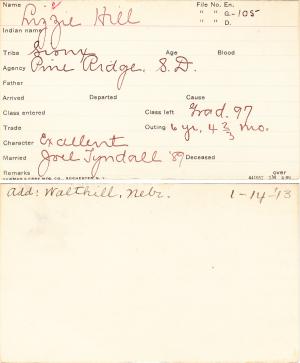 Name Lizzie Hill File No. En.
" " G-105
Indian name " " D.
Tribe Sioux Age Blood
Agency Pine Ridge, S.D.
Father
Arrived Departed Cause
Class entered Class left Grad. 97
Trade Outing 6 yr, 4 2/3 mo.
Character Excellent
Married Joel Tyndall '89 Deceased
Remarks over
MFG. CO., ROCHESTER, N. Y.
Add: Walthill, Nebr. 1-14-'13